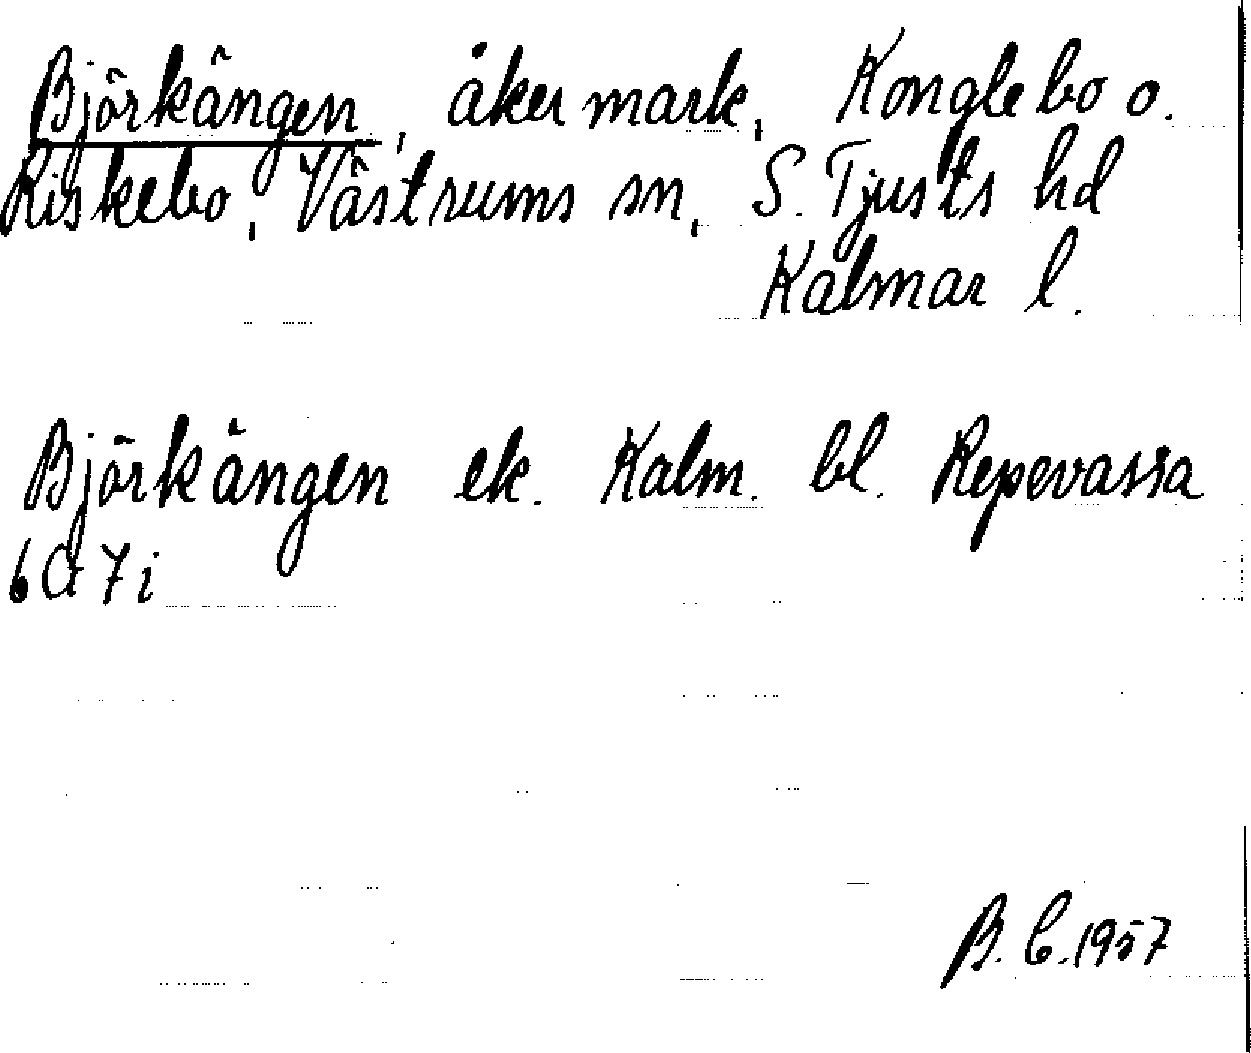 Björkängen, åkermark, Konglebo o.
Riskebo, Västrums sn, S. Tjusts hd
Kalmar l.
Björkängen ek. Kalm. bl. Repevassa
6G7i
B. C. 1957